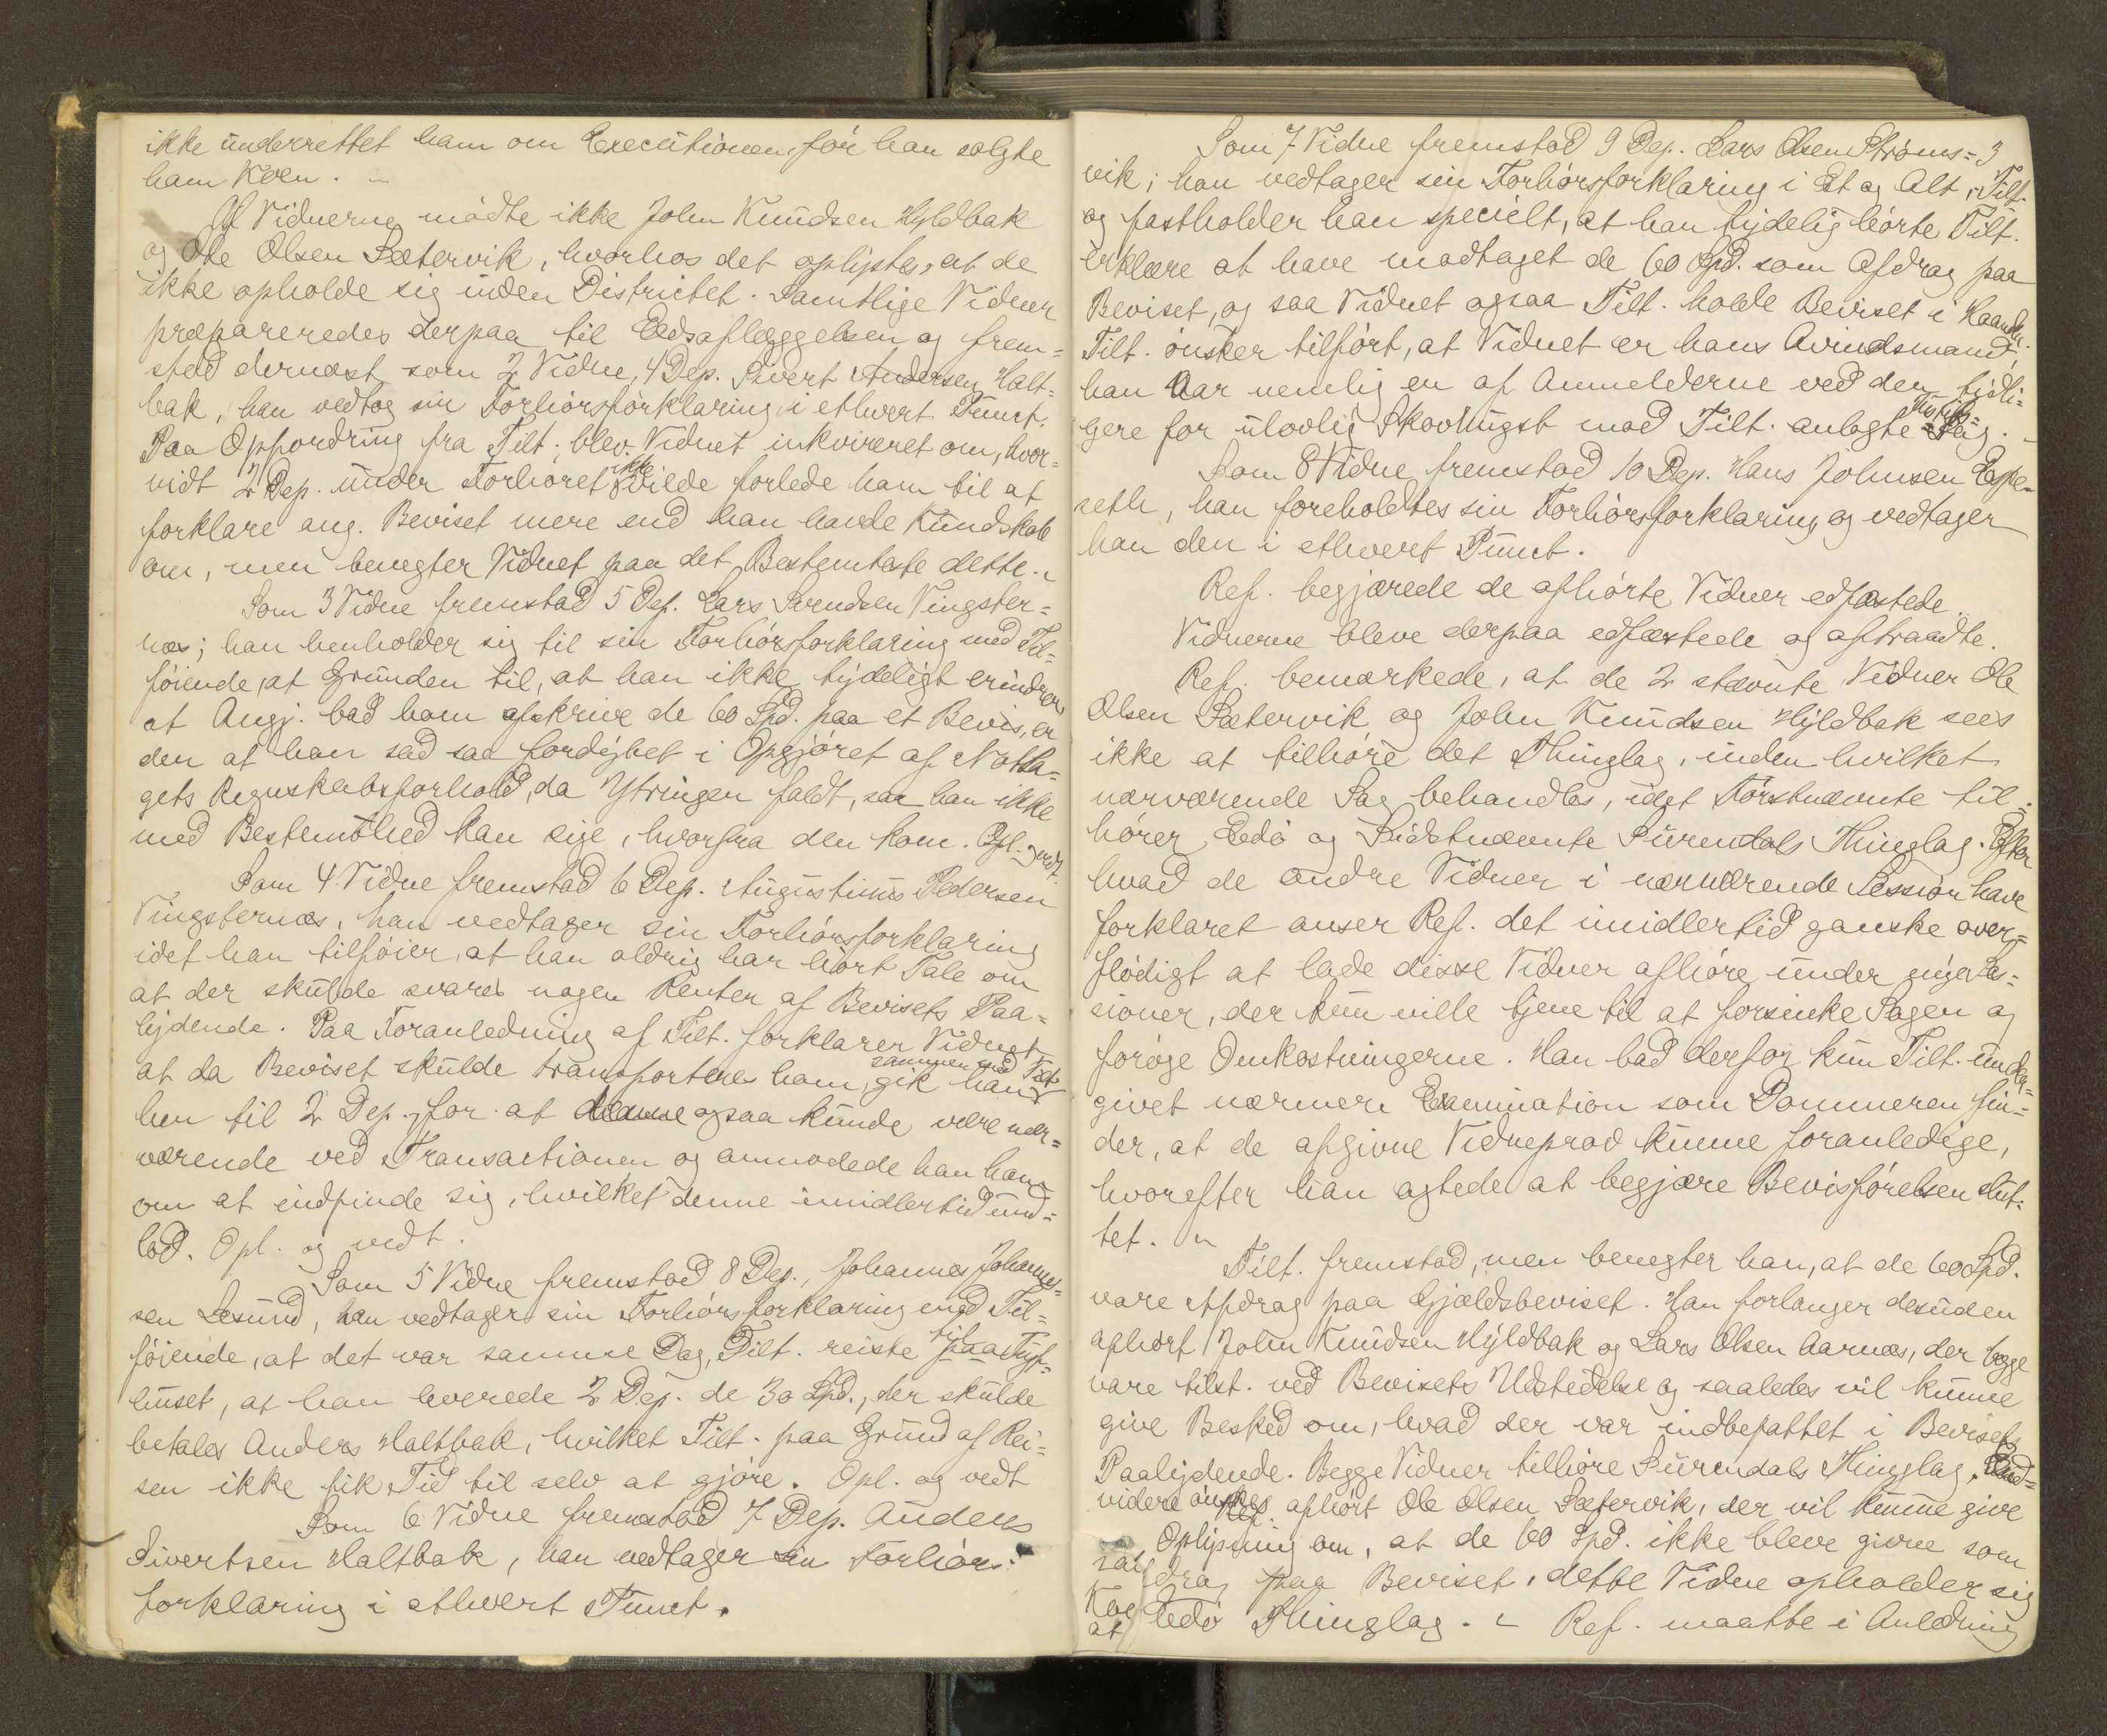 ikke underrettet ham om Executionen, før han solgte
ham Koen.
Af Vidnerne mødte ikke John Knudsen Hyldbak
og Ole Olsen Sætervik, hvorhos det oplystes, at de
ikke opholde sig inden Districtet. Samtlige Vidner
præpareredes derpaa til Eedsaflæggelsen og frem=
stod dernæst som 2 Vidne, 4 Dep. Sivert Andersen Halt=
bak, han vedtog sin Forhørsforklaring i ethvert Punct.
Paa Opfordring fra Tilt. blev Vidnet inkvireret om, hvor=
vidt 2 Dep. under Forhøret ikke vilde forlede ham til at
forklare ang. Beviset mere end han havde Kundskab
om, men benegter Vidnet paa det Bestemteste dette.
Som 3 Vidne fremstod 5 Dep. Lars Svendsen Vingster=
næs; han henholder sig til sin Forhørsforklaring med Til=
føiende, at Grunden til, at han ikke tydeligt erindrer
at Angj. bad ham afskrive de 60 Spd. paa et Bevis, er
den at han sad saa fordybet i Opgjøret af Notla=
gets Regnskabsforhold, da Ytringen faldt, saa han ikke
med Bestemthed kan sige, hvorfra den kom. Opl. vedt.
Som 4 Vidne fremstod 6 Dep. Augustinus Pedersen
Vingsternæs, han vedtager sin Forhørsforklaring
idet han tilføier, at han aldrig har hørt Tale om
at der skulde svares nogen Renter af Bevisets Paa=
lydende. Paa Foranledning af Tilt. forklarer Vidnet
at da Beviset skulde transporteres ham, gik han sammen med Tilt.
hen til 2 Dep., for at denne ogsaa kunde være nær=
værende ved Transactionen og anmodede han ham
om at indfinde sig, hvilket denne imidlertid und=
lod. Opl. og vedt.
Som 5 Vidne fremstod 8 Dep., Johannes Johannes=
sen Lesund, han vedtager sin Forhørsforklaring med Til=
føiende, at det var samme Dag, Tilt. reiste til
huset, at han leverede 2 Dep. de 30 Spd., der skulde
betales Anders Haltbak, hvilket Tilt. paa Grund af Rei=
sen ikke fik Tid til selv at gjøre. Opl. og vedt
Som 6 Vidne fremstod 7 Dep. Anders
Sivertsen Haltbak, han vedtager sin Forhørs=
forklaring i ethvert Punct.
Som 7 Vidne fremstod 9 Dep. Lars Olsen Strøms= 3
vik; han vedtager sin Forhørsforklaring i Et og Alt,
og fastholder han specielt, at han tydelig hørte Tilt.
erklære at have modtaget de 60 Spd. som Afdrag paa
Beviset, og saa Vidnet ogsaa Tilt. holde Beviset i Haanden.
Tilt. ønsker tilført, at Vidnet er hans Avindsmand,
han var nemlig en af Anmelderne ved den tidli=
gere for ulovlig Skovhugst mod Tilt. anlagte Sag.
Som 8 Vidne fremstod 10 Dep. Hans Johnsen Espe=
seth, han foreholdtes sin Forhørsforklaring og vedtager
han den i ethvert Punct.
Ref. begjærede de afhørte Vidner edfæstede.
Vidnerne bleve derpaa edfæstede og aftraadte.
Ref. bemærkede, at de 2 stævnte Vidner Ole
Olsen Sætervik og John Knudsen Hyldbak sees
ikke at tilhøre det Thinglag, inden hvilket
nærværende Sag behandles, idet Førstnævnte til=
hører Edø og Sidstnævnte Surendals Thinglag. Efter
hvad de andre Vidner i nærværende Session have
forklaret anser Ref. det imidlertid ganske over=
flødigt at lade disse Vidner afhøre under nye Ses=
sioner, der kun ville tjene til at forsinke Sagen og
forøge Omkostningerne. Han bad derfor kun Tilt. under=
givet nærmere Examination som Dommeren fin=
der, at de afgivne Vidneprov kunne foranledige,
hvorefter han agtede at begjære Bevisførelsen slut=
tet.
Tilt. fremstod, men benegter han, at de 60 Spd.
vare Afdrag paa Gjældsbeviset. Han forlanger desuden
afhørt John Knudsen Hyldbak og Lars Olsen Aarnæs, der begge
vare tilst. ved Bevisets Udstedelse og saaledes vil kunne
give Besked om, hvad der var indbefattet i Bevisets
Paalydende. Begge Vidner tilhøre Surendals Thinglag. End=
videre ønskes afhørt Ole Olsen Sætervik, der vil kunne give
Oplysning om, at de 60 Spd. ikke bleve givne som
Afdrag paa Beviset, dette Vidne opholder sig
Edø Thinglag. Ref. maatte i Anledning